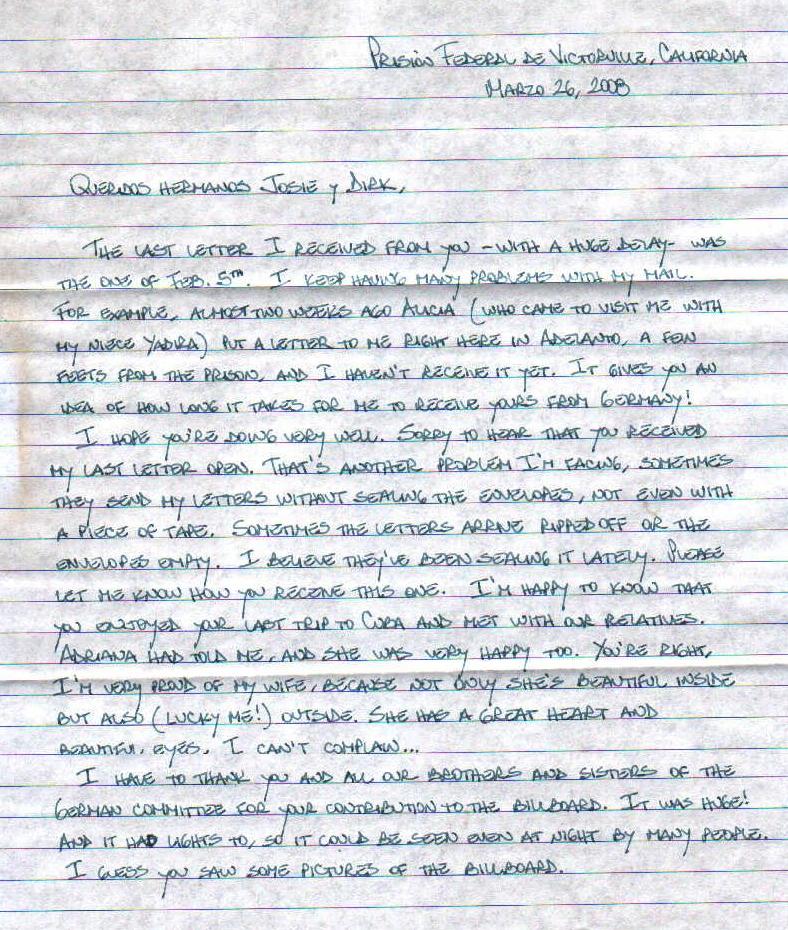 PRISIÓN FEDERAL DE VICTORVILLE, CALIFORNIA
MARZO 26, 2008
QUERIDOS HERMANOS JOSIE Y DIRK,
THE LAST LETTER I RECEIVED FROM YOU -WITH A HUGE DELAY- WAS
THE ONE OF FEB. 5TH. I KEEP HAVING MANY PROBLEMS WITH MY MAIL.
FOR EXAMPLE, ALMOST TWO WEEKS AGO ALICIA (WHO CAME TO VISIT ME WITH
MY NIECE YADIRA) PUT A LETTER TO ME RIGHT HERE IN ADELANTO, A FEW
FEETS FROM THE PRISON, AND I HAVEN'T RECEIVE IT YET. IT GIVES YOU AN
IDEA OF HOW LONG IT TAKES FOR ME TO RECEIVE YOURS FROM GERMANY!
I HOPE YOU'RE DOING VERY WELL. SORRY TO HEAR THAT YOU RECEIVED
MY LAST LETTER OPEN. THAT'S ANOTHER PROBLEM I'M FACING, SOMETIMES
THEY SEND MY LETTERS WITHOUT SEALING THE ENVELOPES, NOT EVEN WITH
A PIECE OF TAPE. SOMETIMES THE LETTERS ARRIVE RIPPED OFF OR THE
ENVELOPES EMPTY. I BELIEVE THEY'VE BEEN SEALING IT LATELY. PLEASE
LET ME KNOW HOW YOU RECEIVE THIS ONE. I'M HAPPY TO KNOW THAT
YOU ENJOYED YOUR LAST TRIP TO CUBA AND MET WITH OUR RELATIVES.
ADRIANA HAD TOLD ME, AND SHE WAS VERY HAPPY TOO. YOU'RE RIGHT,
I'M VERY PROUD OF MY WIFE, BECAUSE NOT ONLY SHE'S BEAUTIFUL INSIDE
BUT ALSO (LUCKY ME!) OUTSIDE. SHE HAS A GREAT HEART AND
BEAUTIFUL EYES, I CAN'T COMPLAIN...
I HAVE TO THANK YOU AND ALL OUR BROTHERS AND SISTERS OF THE
GERMAN COMMITTEE FOR YOUR CONTRIBUTION TO THE BILLBOARD. IT WAS HUGE!
AND IT HAD LIGHTS TO, SO IT COULD BE SEEN EVEN AT NIGHT BY MANY PEOPLE.
I GUESS YOU SAW SOME PICTURES OF THE BILLBOARD.